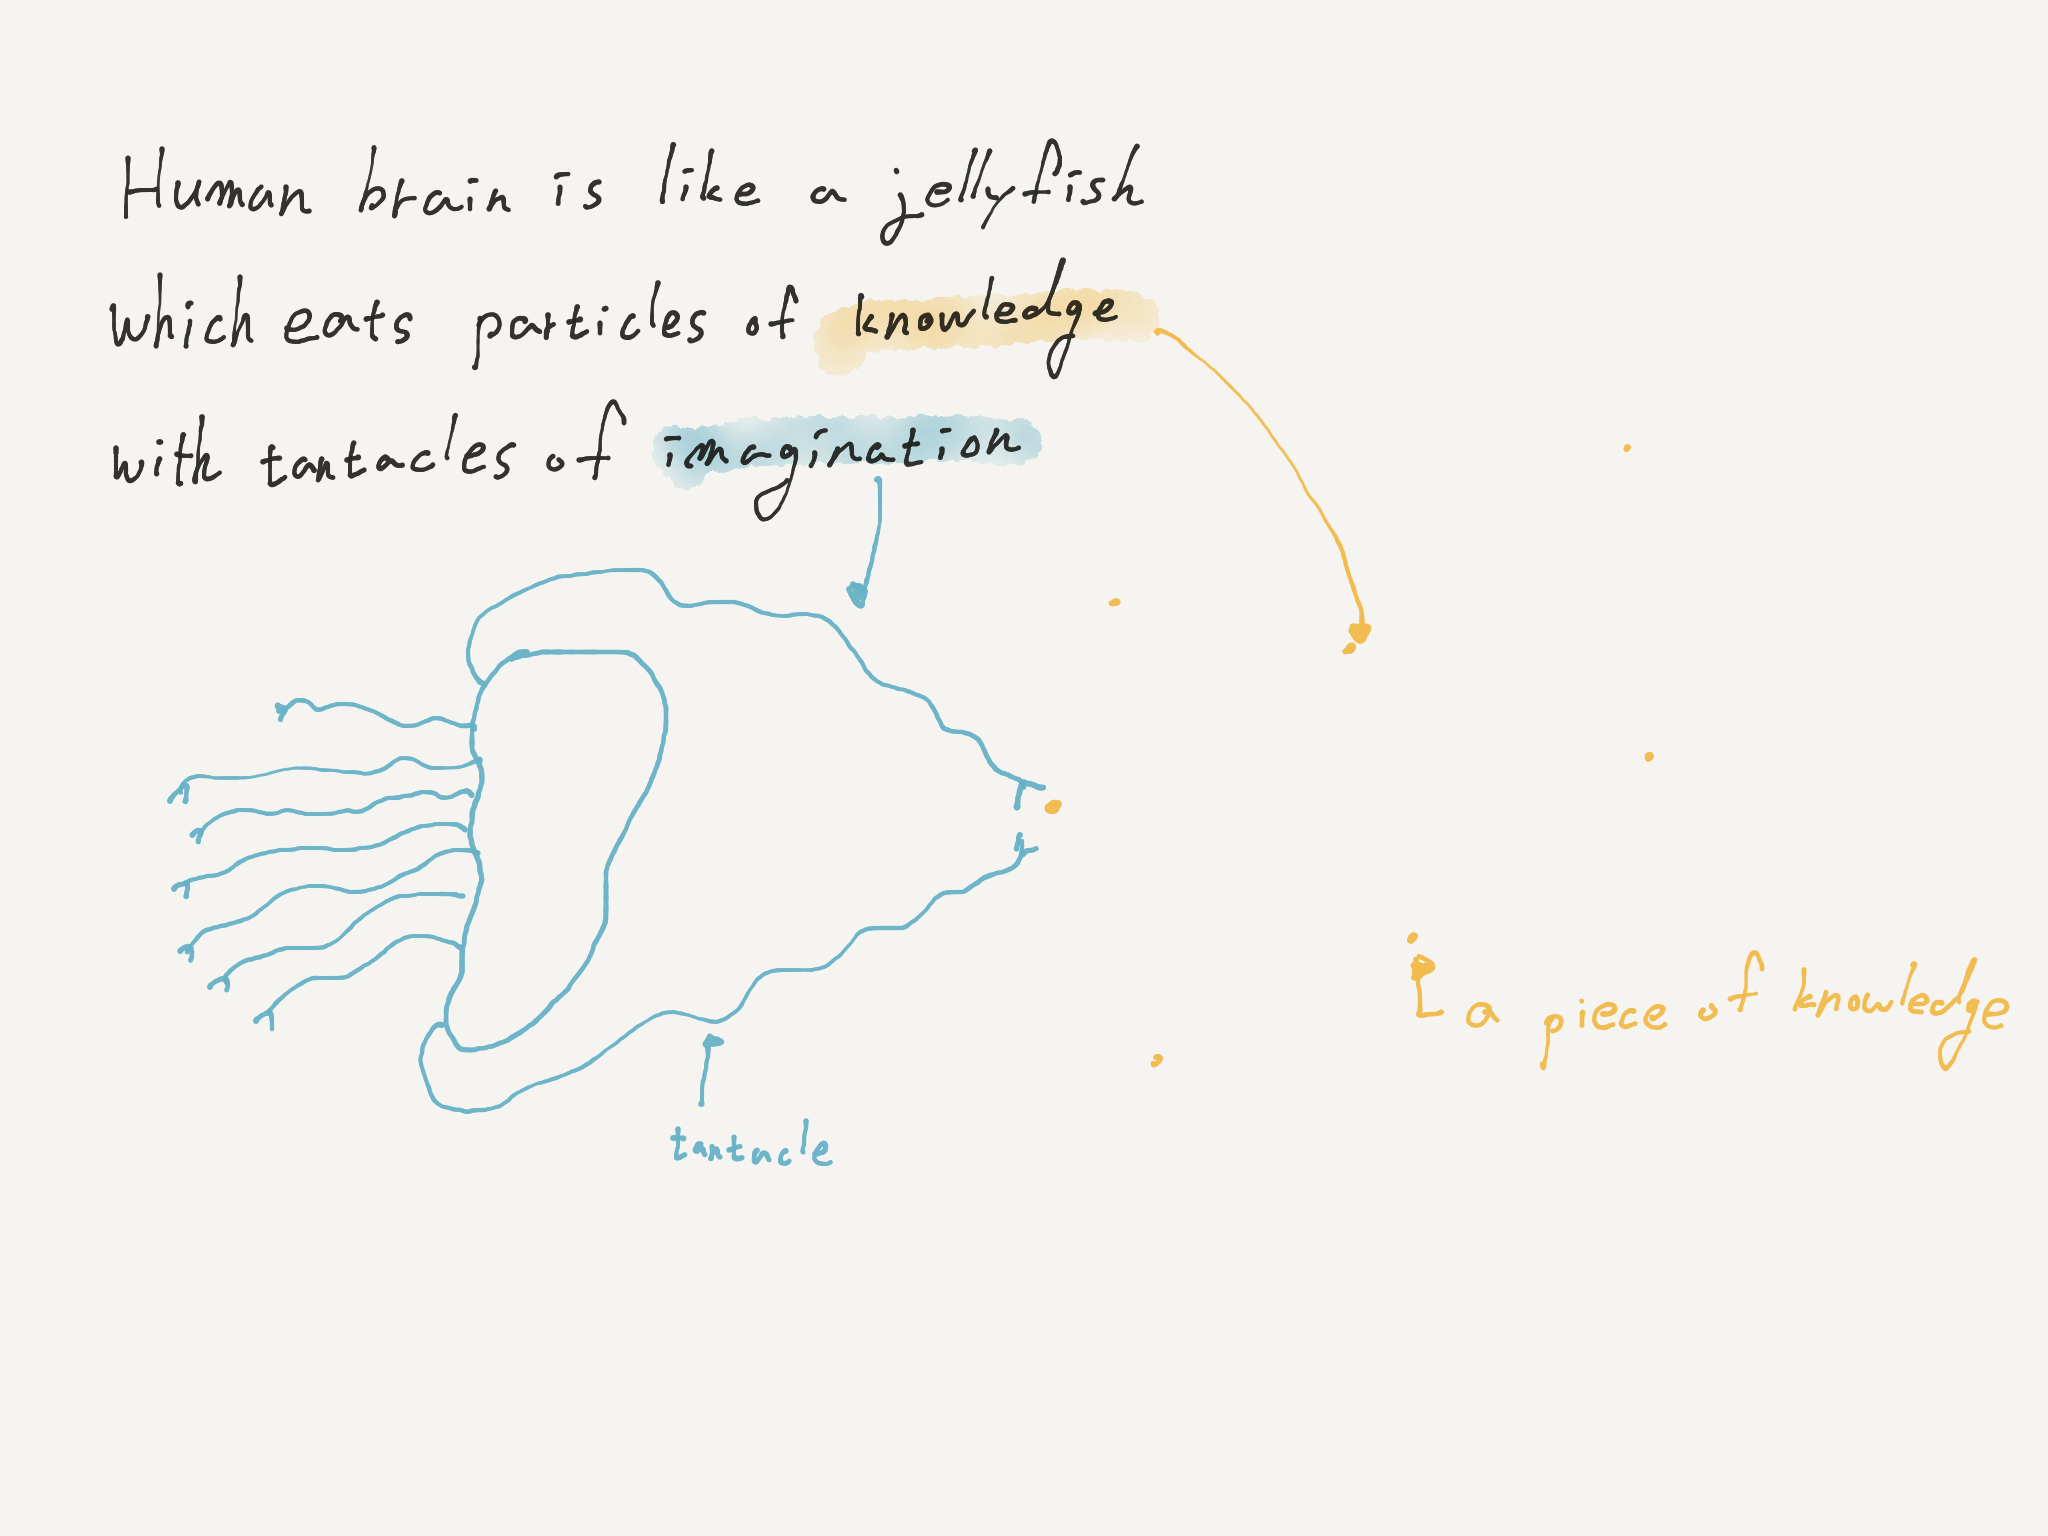 Human brain is like a jellyfish
which eats particles of knowledge
with tantacles of imagination
a piece of knowledge
tantacle